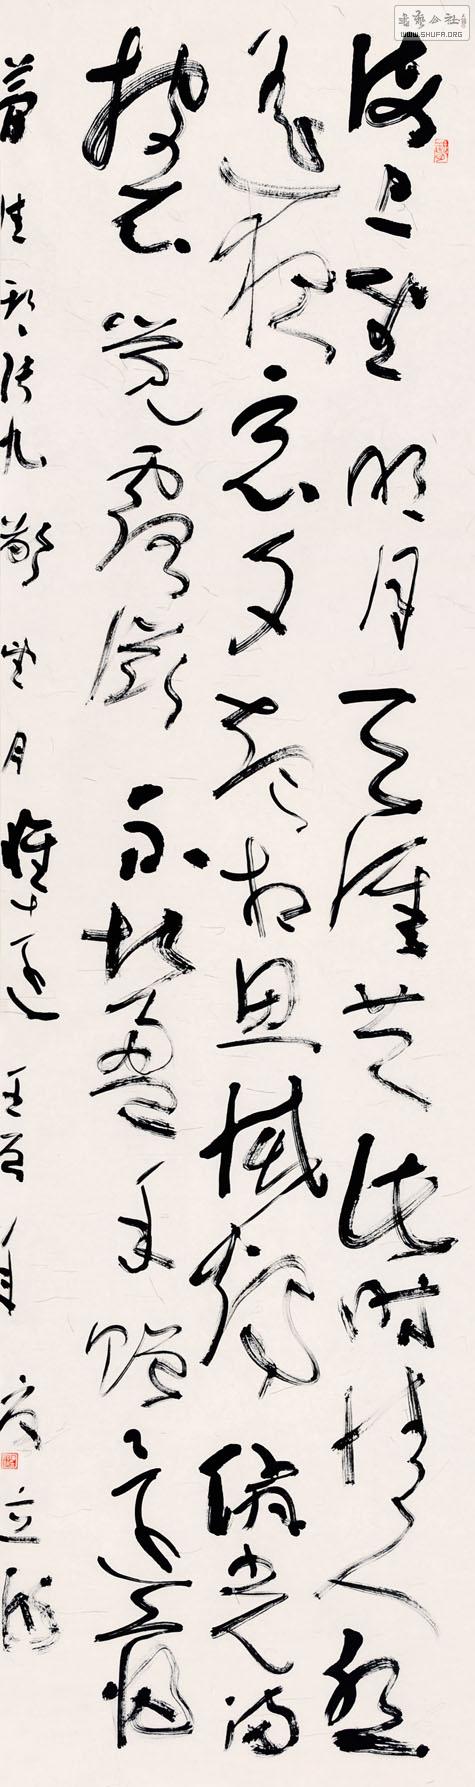 海上望明月天涯共此時情人怨
遙夜竟夕起相思滅燭憐光滿
披衣覺露滋不堪盈手贈還寢
夢佳期張九齡望月懷遠壬寅年夏立
書藝公社
WWW.SHUFA.ORG